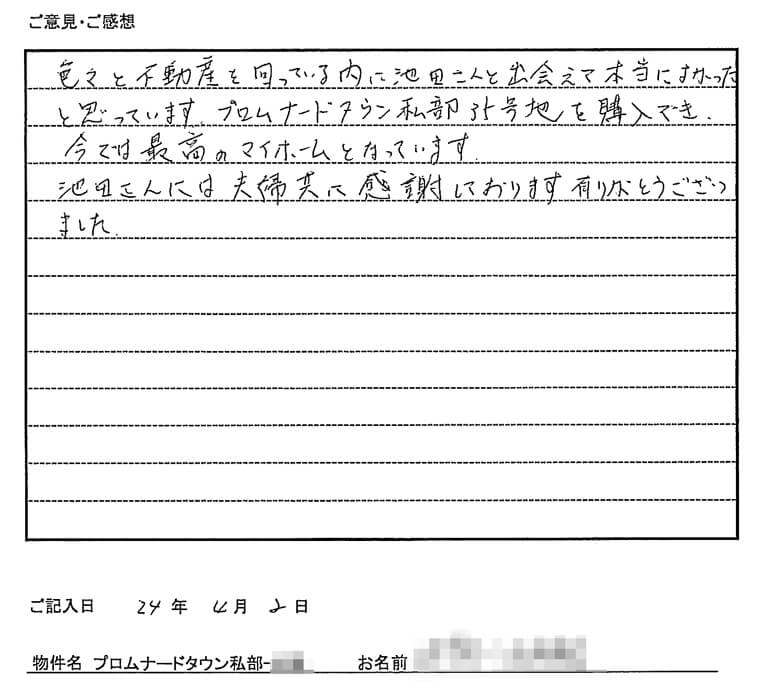 ご意見・ご感想
色々と不動産を回っている内に池田さんと出会えて本当によかった
と思っています。プロムナードタウン私部35号地を購入でき、
今では最高のマイホームとなっています。
池田さんには夫婦共に感謝しております有りがとうござい
ました。
ご記入日 24年 4月 2日
物件名 プロムナードタウン私部- お名前